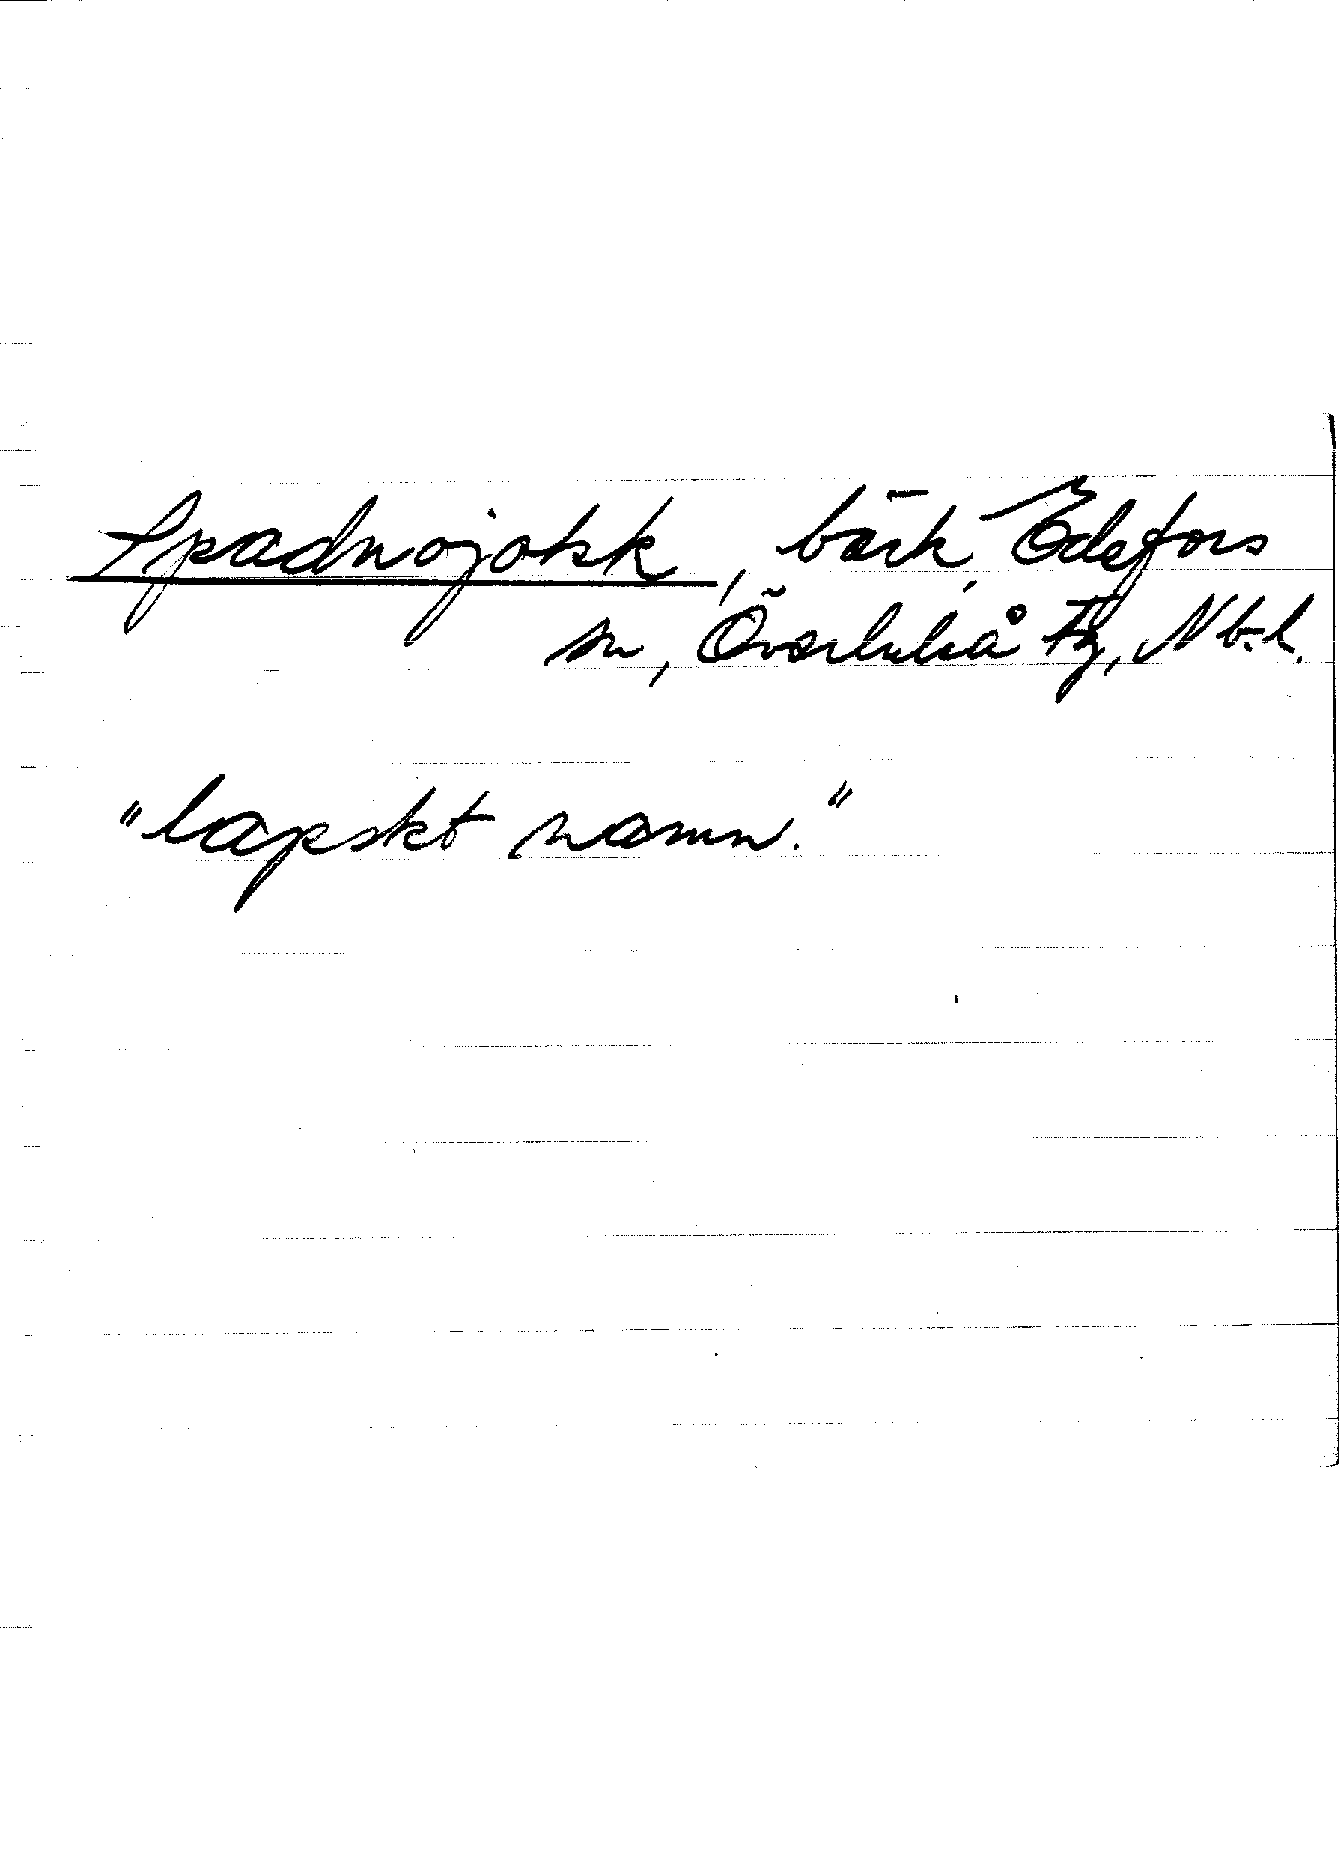 Spadnojokk, bäck, Edefors
sn, Överluleå tg, Nb.l.
"lapskt namn."